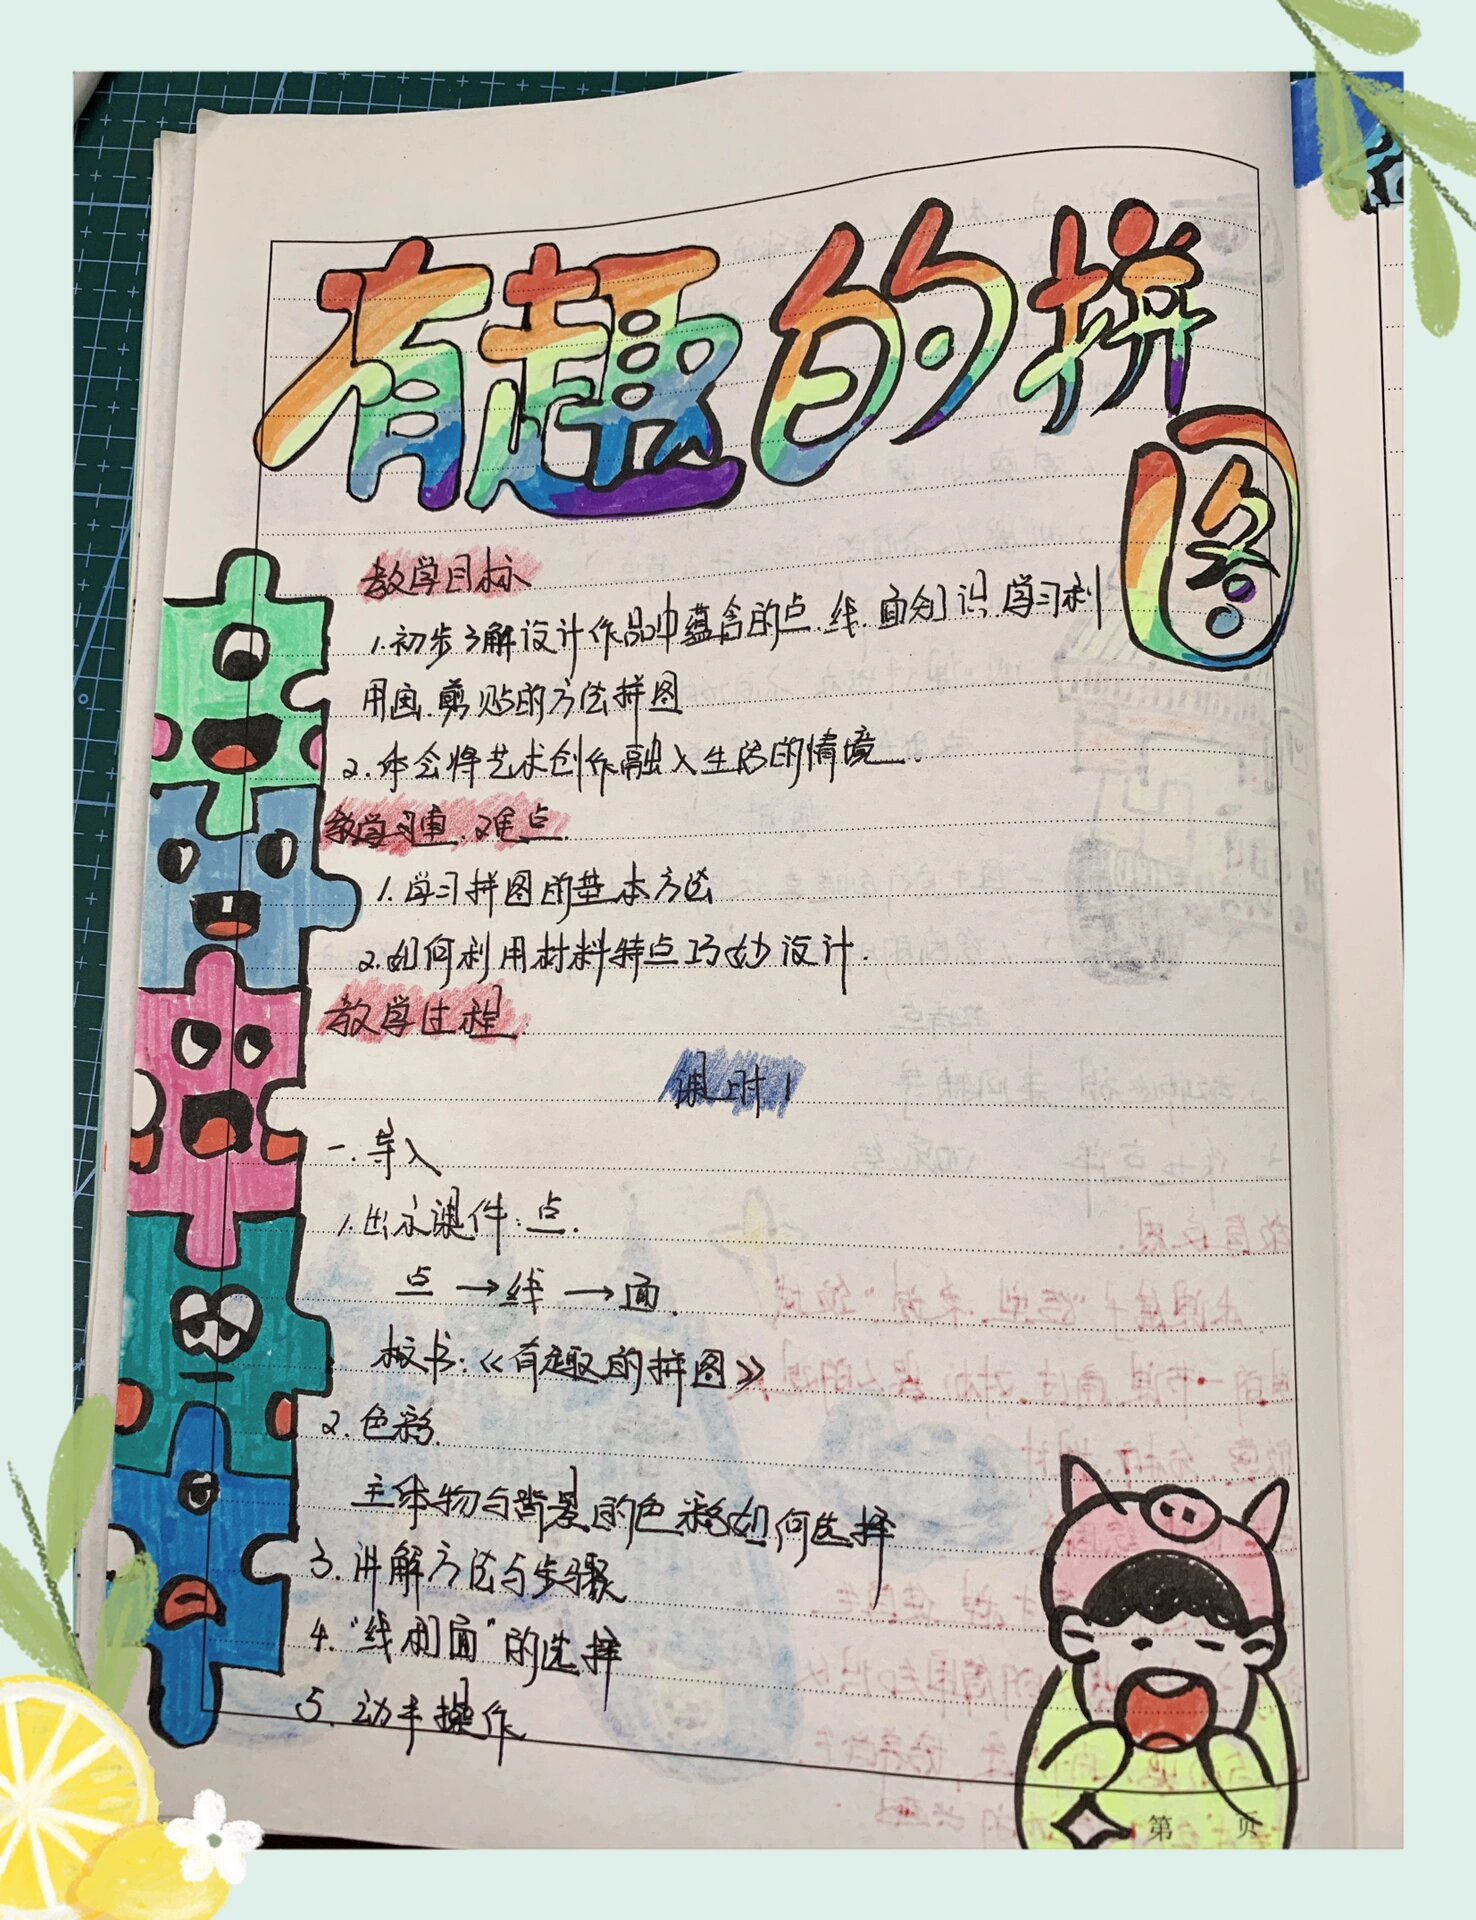 有趣的拼图
教学目标
1.初步了解设计作品中蕴含的点.线.面知识 学习利
用画.剪.贴的方法拼图
2.体会将艺术创作融入生活的情境.
教学习重.难点.
1.学习拼图的基本方法
2.如何利用材料特点巧妙设计.
教学过程.
课时1
一.导入
1.出示课件:点.
点→线→面.
板书:《有趣的拼图》
2.色彩.
主体物与背景的色彩如何选择
3.讲解方法与步骤
4."线和面"的选择
5.动手操作
第 页